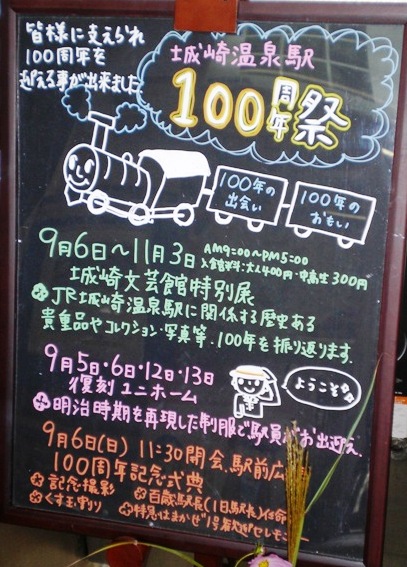 皆様に支えられ
100周年を
迎える事が出来ました
城崎温泉駅
100周年祭
100年の
出会い
100年の
おもい
9月6日〜11月3日
AM9:00〜PM5:00
入館料:大人400円・中高生300円
城崎文芸館特別展
JR城崎温泉駅に関係する歴史ある
貴重品やコレクション・写真等.100年を振り返ります.
9月5日・6日・12日・13日
復刻ユニホーム
ようこそ
明治時期を再現した制服で駅員がお出迎え.
9月6日(日) 11:30開会.駅前広
100周年記念式典
記念撮影
百歳駅長(1日駅長)任命
くす玉割り
特急はまかぜ1号着迎セレモニー